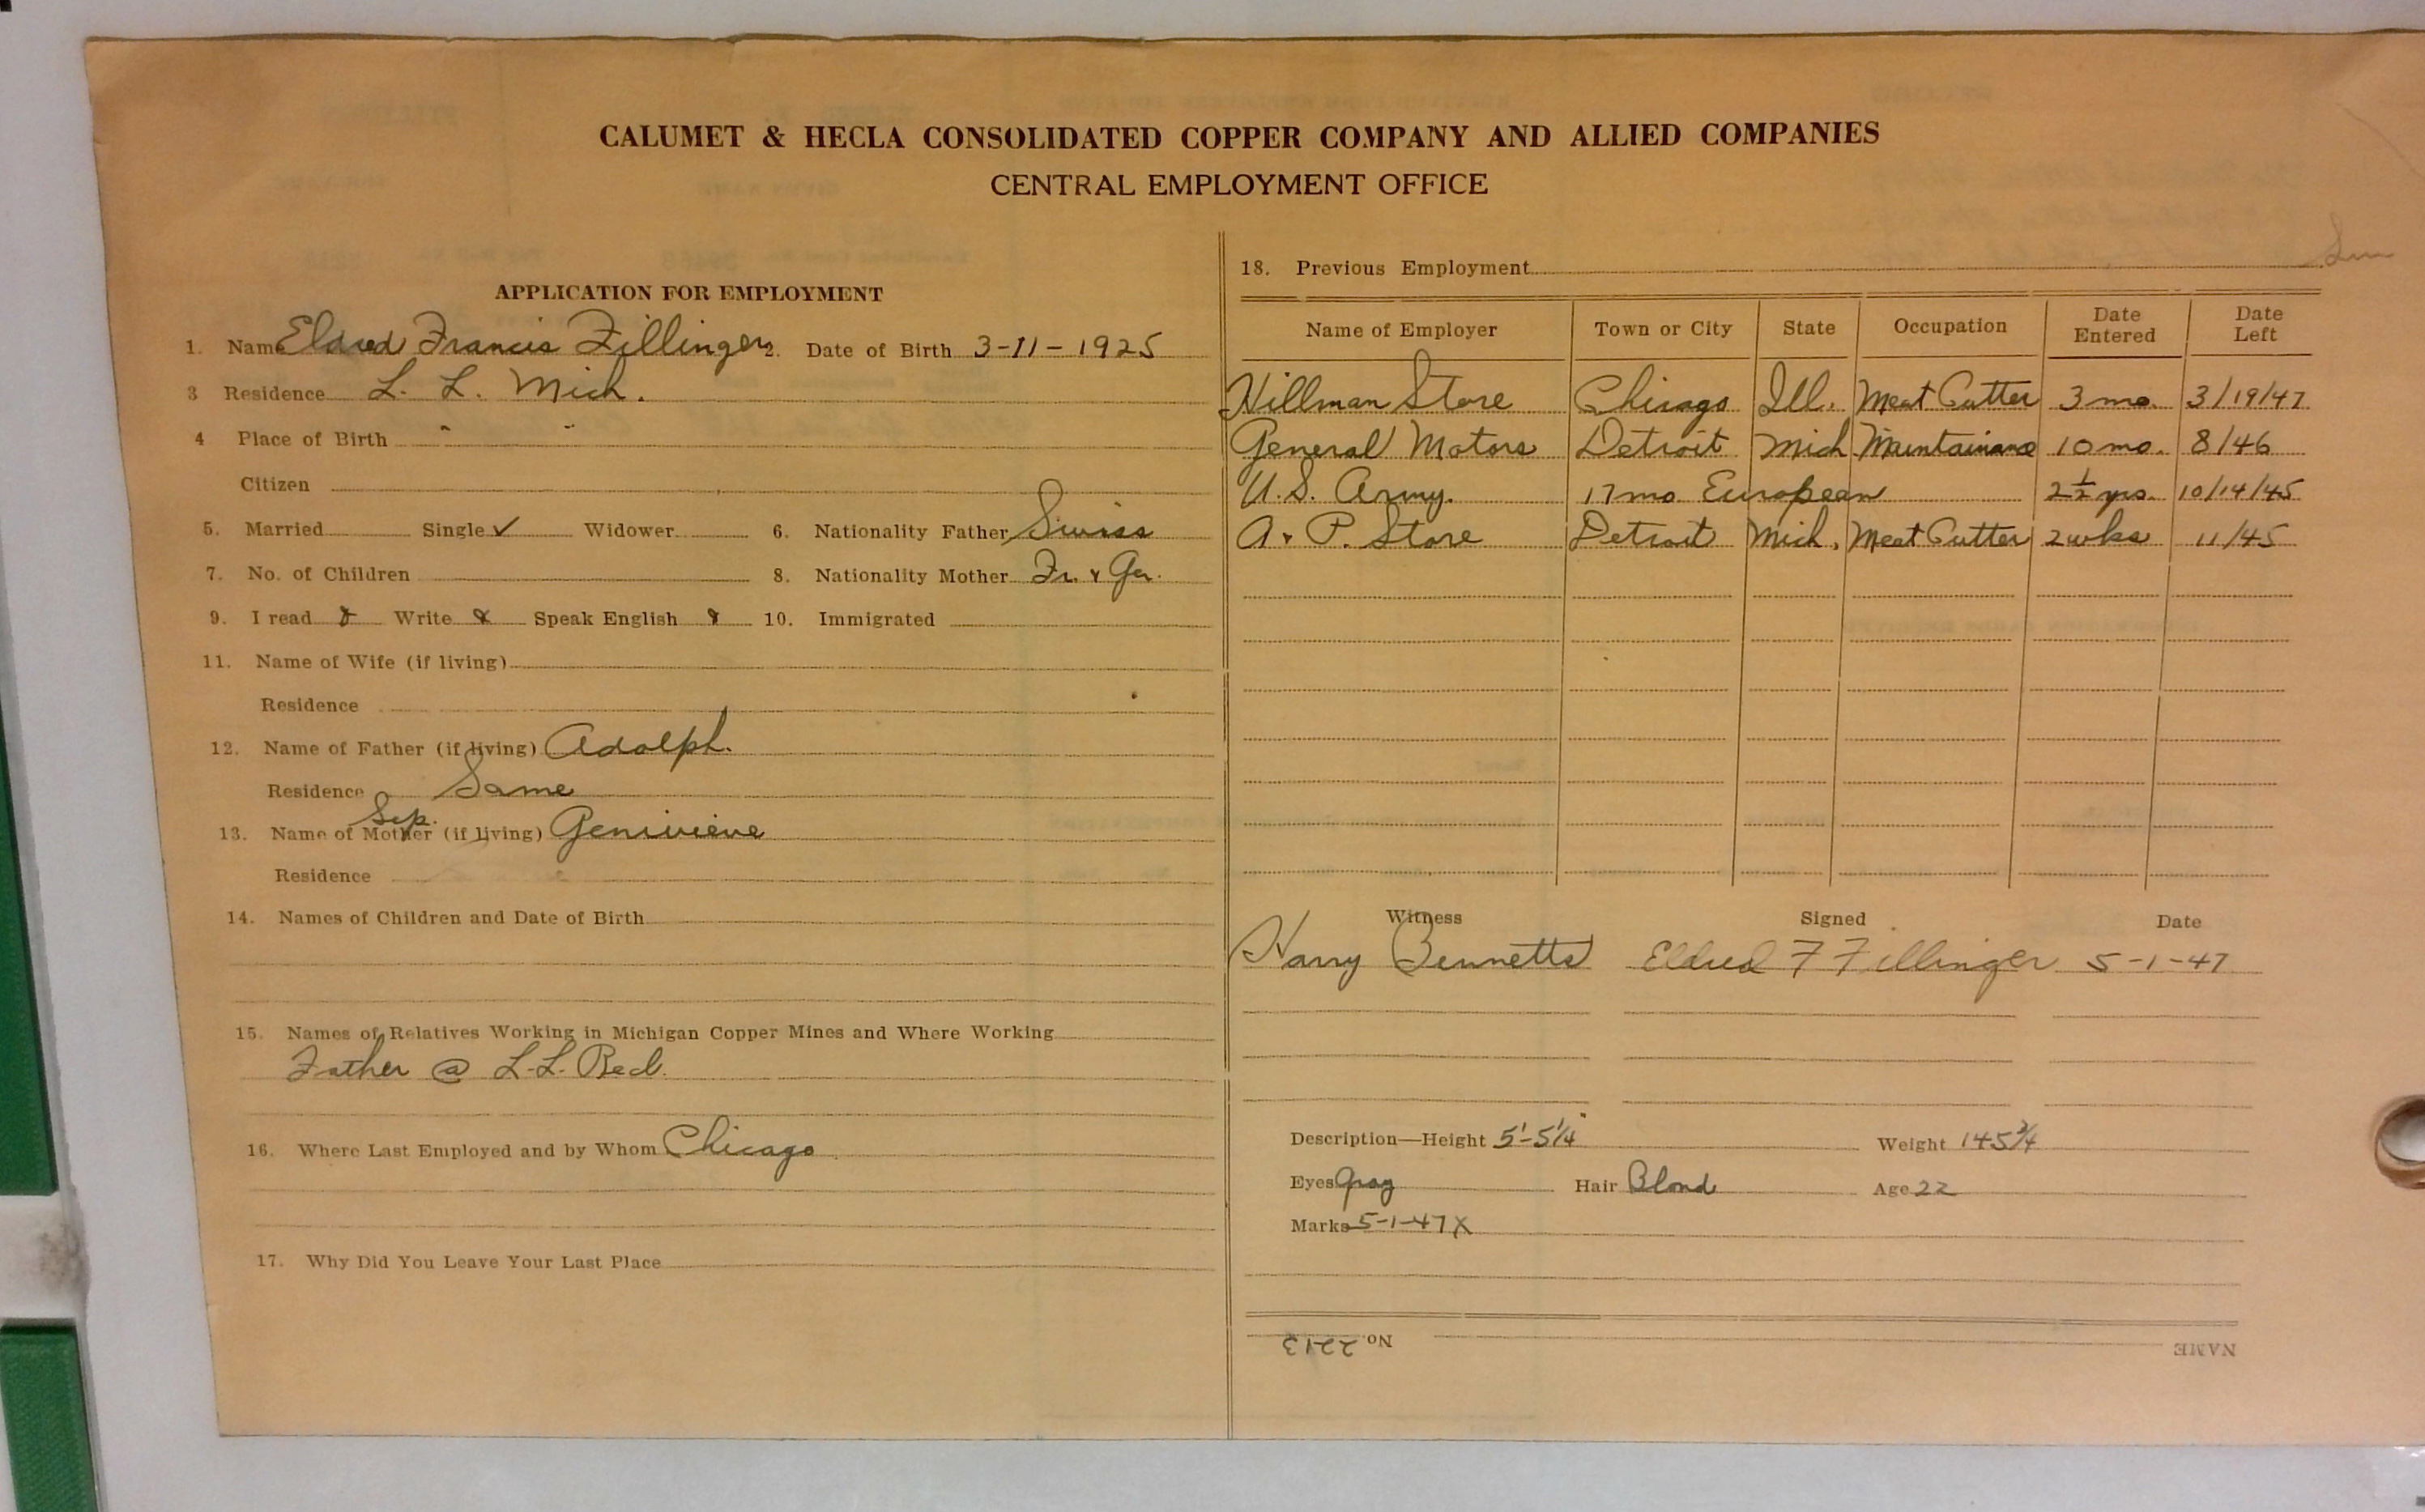 CALUMET & HECLA CONSOLIDATED COPPER COMPANY AND ALLIED COMPANIES
CENTRAL EMPLOYMENT OFFICE
APPLICATION FOR EMPLOYMENT
1. Name Eldred Francis Fillinger 2. Date of Birth 3-11-1925
3 Residence L. L. Mich.
4 Place of Birth " "
Citizen
5. Married Single ✓ Widower 6. Nationality Father Swiss
7. No. of Children 8. Nationality Mother Fr. & Ger.
9. I read Write Speak English 10. Immigrated
11. Name of Wife (if living)
Residence
12. Name of Father (if living) Adolph.
Residence Same
Sep.
13. Name of Mother (if living) Genivieve
Residence
14. Names of Children and Date of Birth
15. Names of Relatives Working in Michigan Copper Mines and Where Working
Father @ L.L. Recl.
16. Where Last Employed and by Whom Chicago
17. Why Did You Leave Your Last Place
18. Previous Employment
Name of Employer Town or City State Occupation Date Entered Date Left
Hillman Store Chicago Ill. Meat Cutter 3 mo. 3/19/47
General Motors Detroit Mich. Maintainance 10 mo. 8/46
U.S. Army. 17 mo European 2½ yrs. 10/14/45
A & P. Store Detroit Mich. Meat Cutter 2 wks 11/45
Witness Signed Date
Harry Bennetts Eldred F Fillinger 5-1-47
Description—Height 5'-5¼" Weight 145¾
Eyes Gray Hair Blond Age 22
Marks 5-1-47 X
No. 2213 NAME